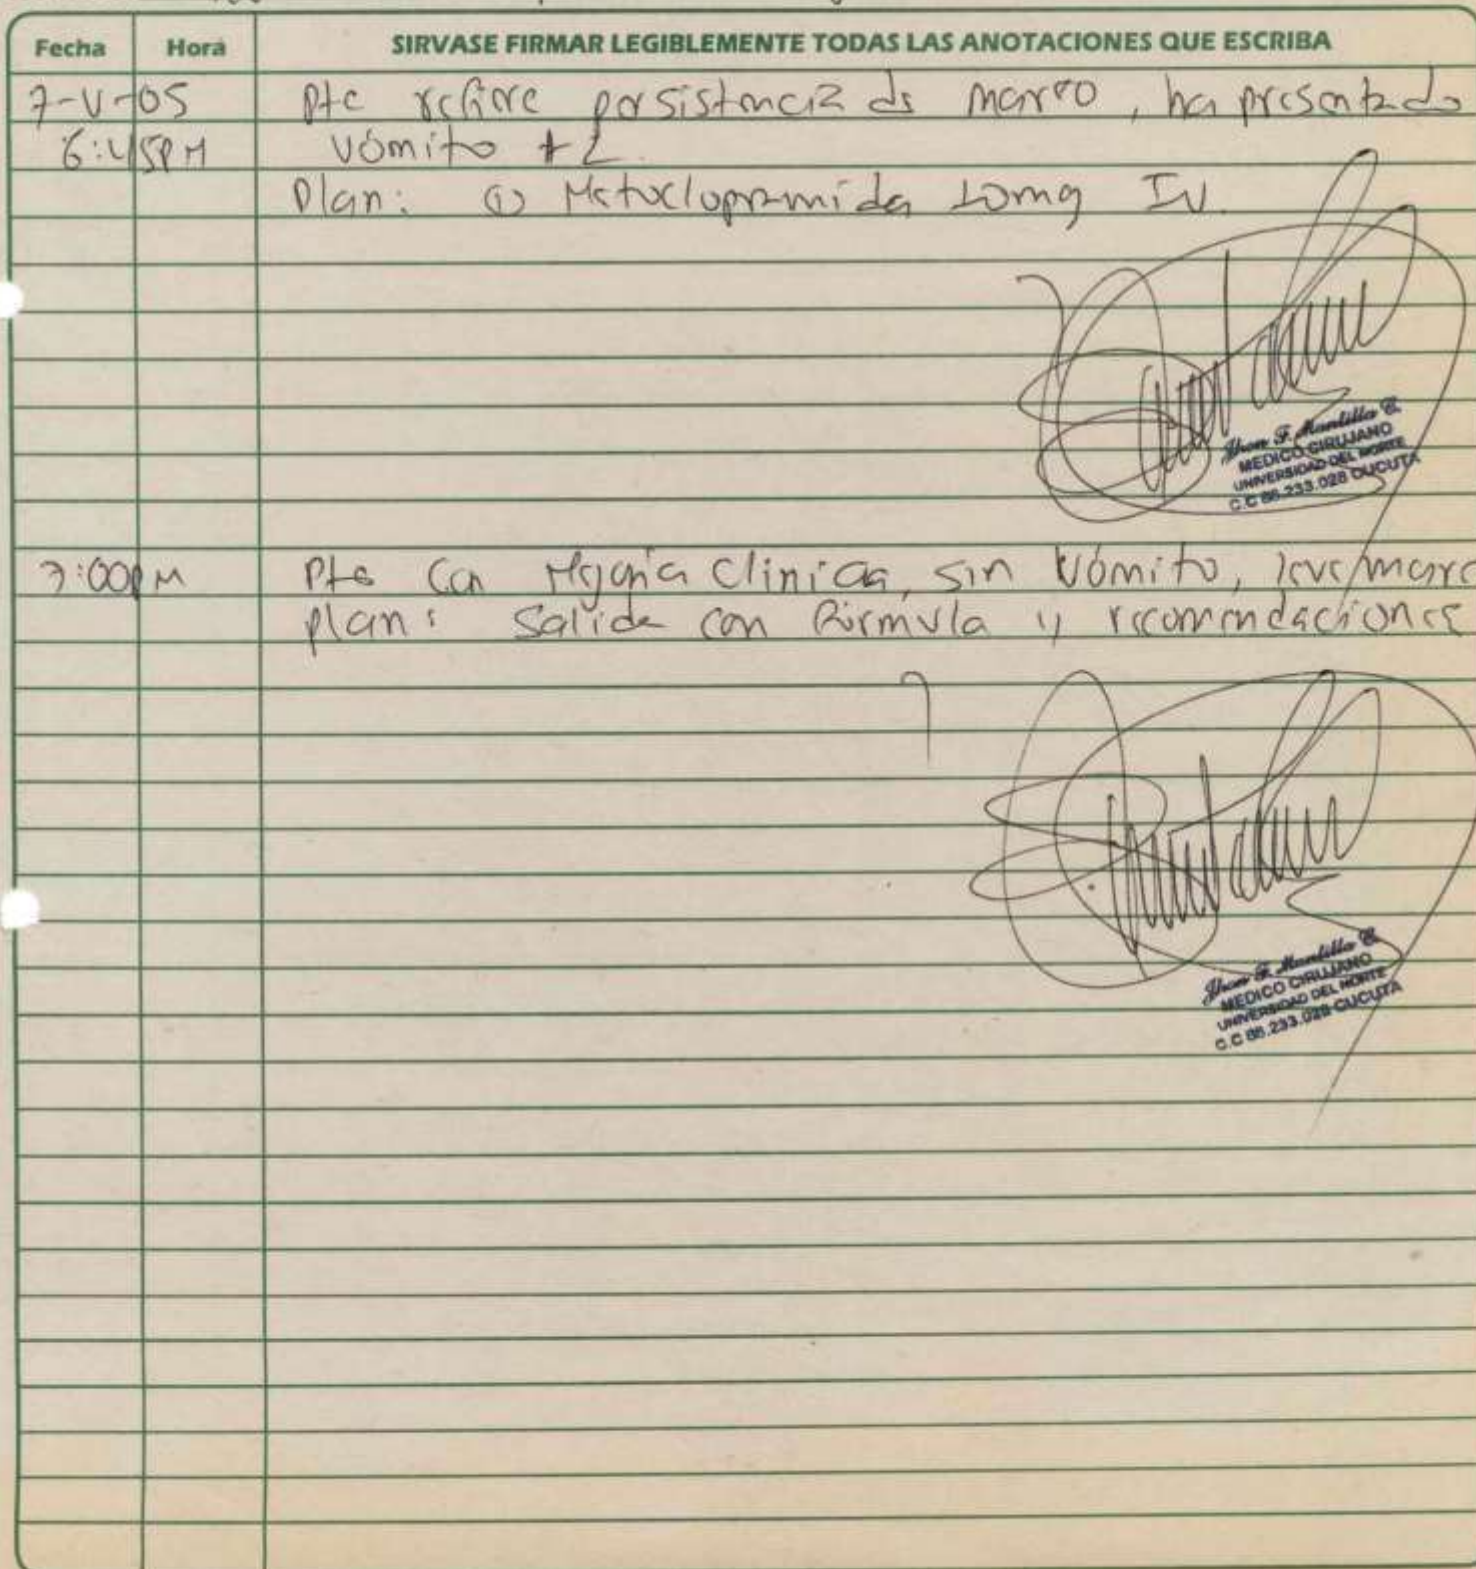 Fecha Hora SIRVASE FIRMAR LEGIBLEMENTE TODAS LAS ANOTACIONES QUE ESCRIBA
7-V-05 Pte refiere persistencia de mareo, ha presentado
6:45PM vómito
Plan: ① Metoclopramida 10mg IV.
Jhon F. Mantilla C.
MEDICO CIRUJANO
UNIVERSIDAD DEL NORTE
C.C 88.233.028 CUCUTA
7:00PM Pte con Mejoria Clinica, sin vómito, leve mareo
plan: Salida con fórmula y recomendaciones
Jhon F. Mantilla C.
MEDICO CIRUJANO
UNIVERSIDAD DEL NORTE
C.C 88.233.028 CUCUTA